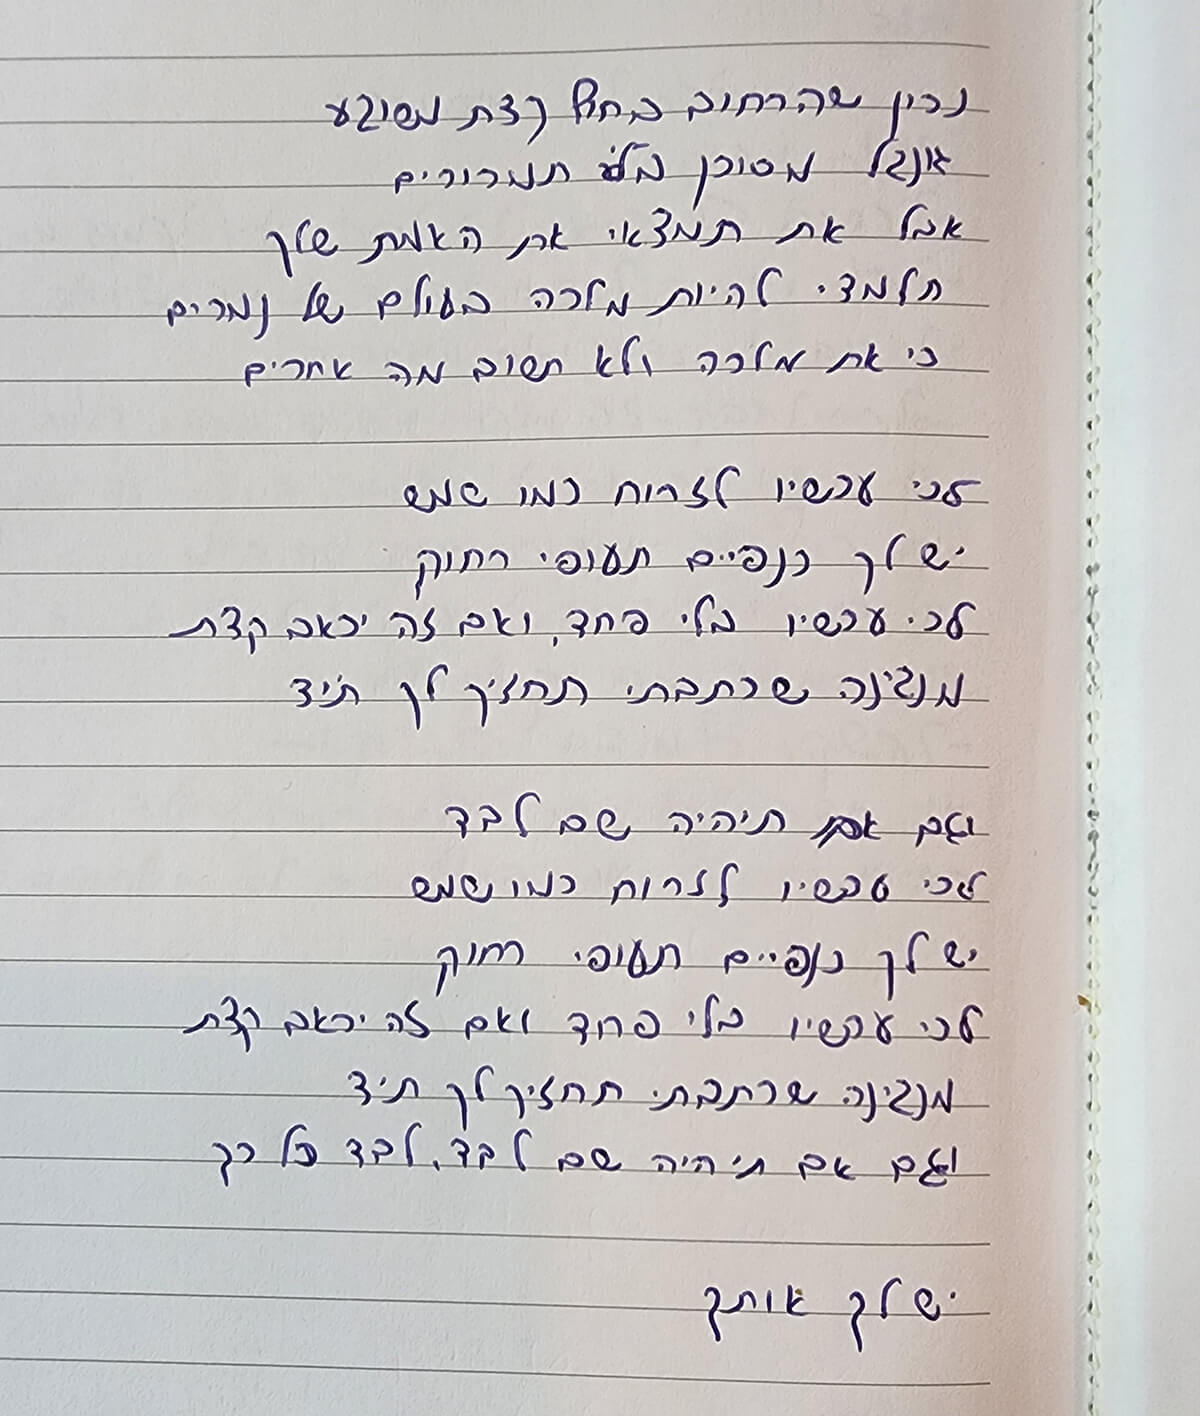 נכין שהרחוב בחוץ קצת משוגע
ג'ונגל מסוכן בלי תמרורים
אבל את תמצאי את האמת שלך
תלמדי להיות מלכה בעולם של נמרים
כי את מלכה ולא חשוב מה אחרים
לכי עכשיו לזרוח כמו שמש
יש לך כנפיים תעופי רחוק
לכי עכשיו בלי פחד, ואם זה יכאב קצת
מנגינה שכתבתי תחזיק לך ת'יד
וגם אם תיהיה שם לבד
לכי עכשיו לזרוח כמו שמש
יש לך כנפיים תעופי רחוק
לכי עכשיו בלי פחד ואם זה יכאב קצת
מנגינה שכתבתי תחזיק לך ת'יד
וגם אם תיהיה שם לבד, לבד כל כך
יש לך אותך